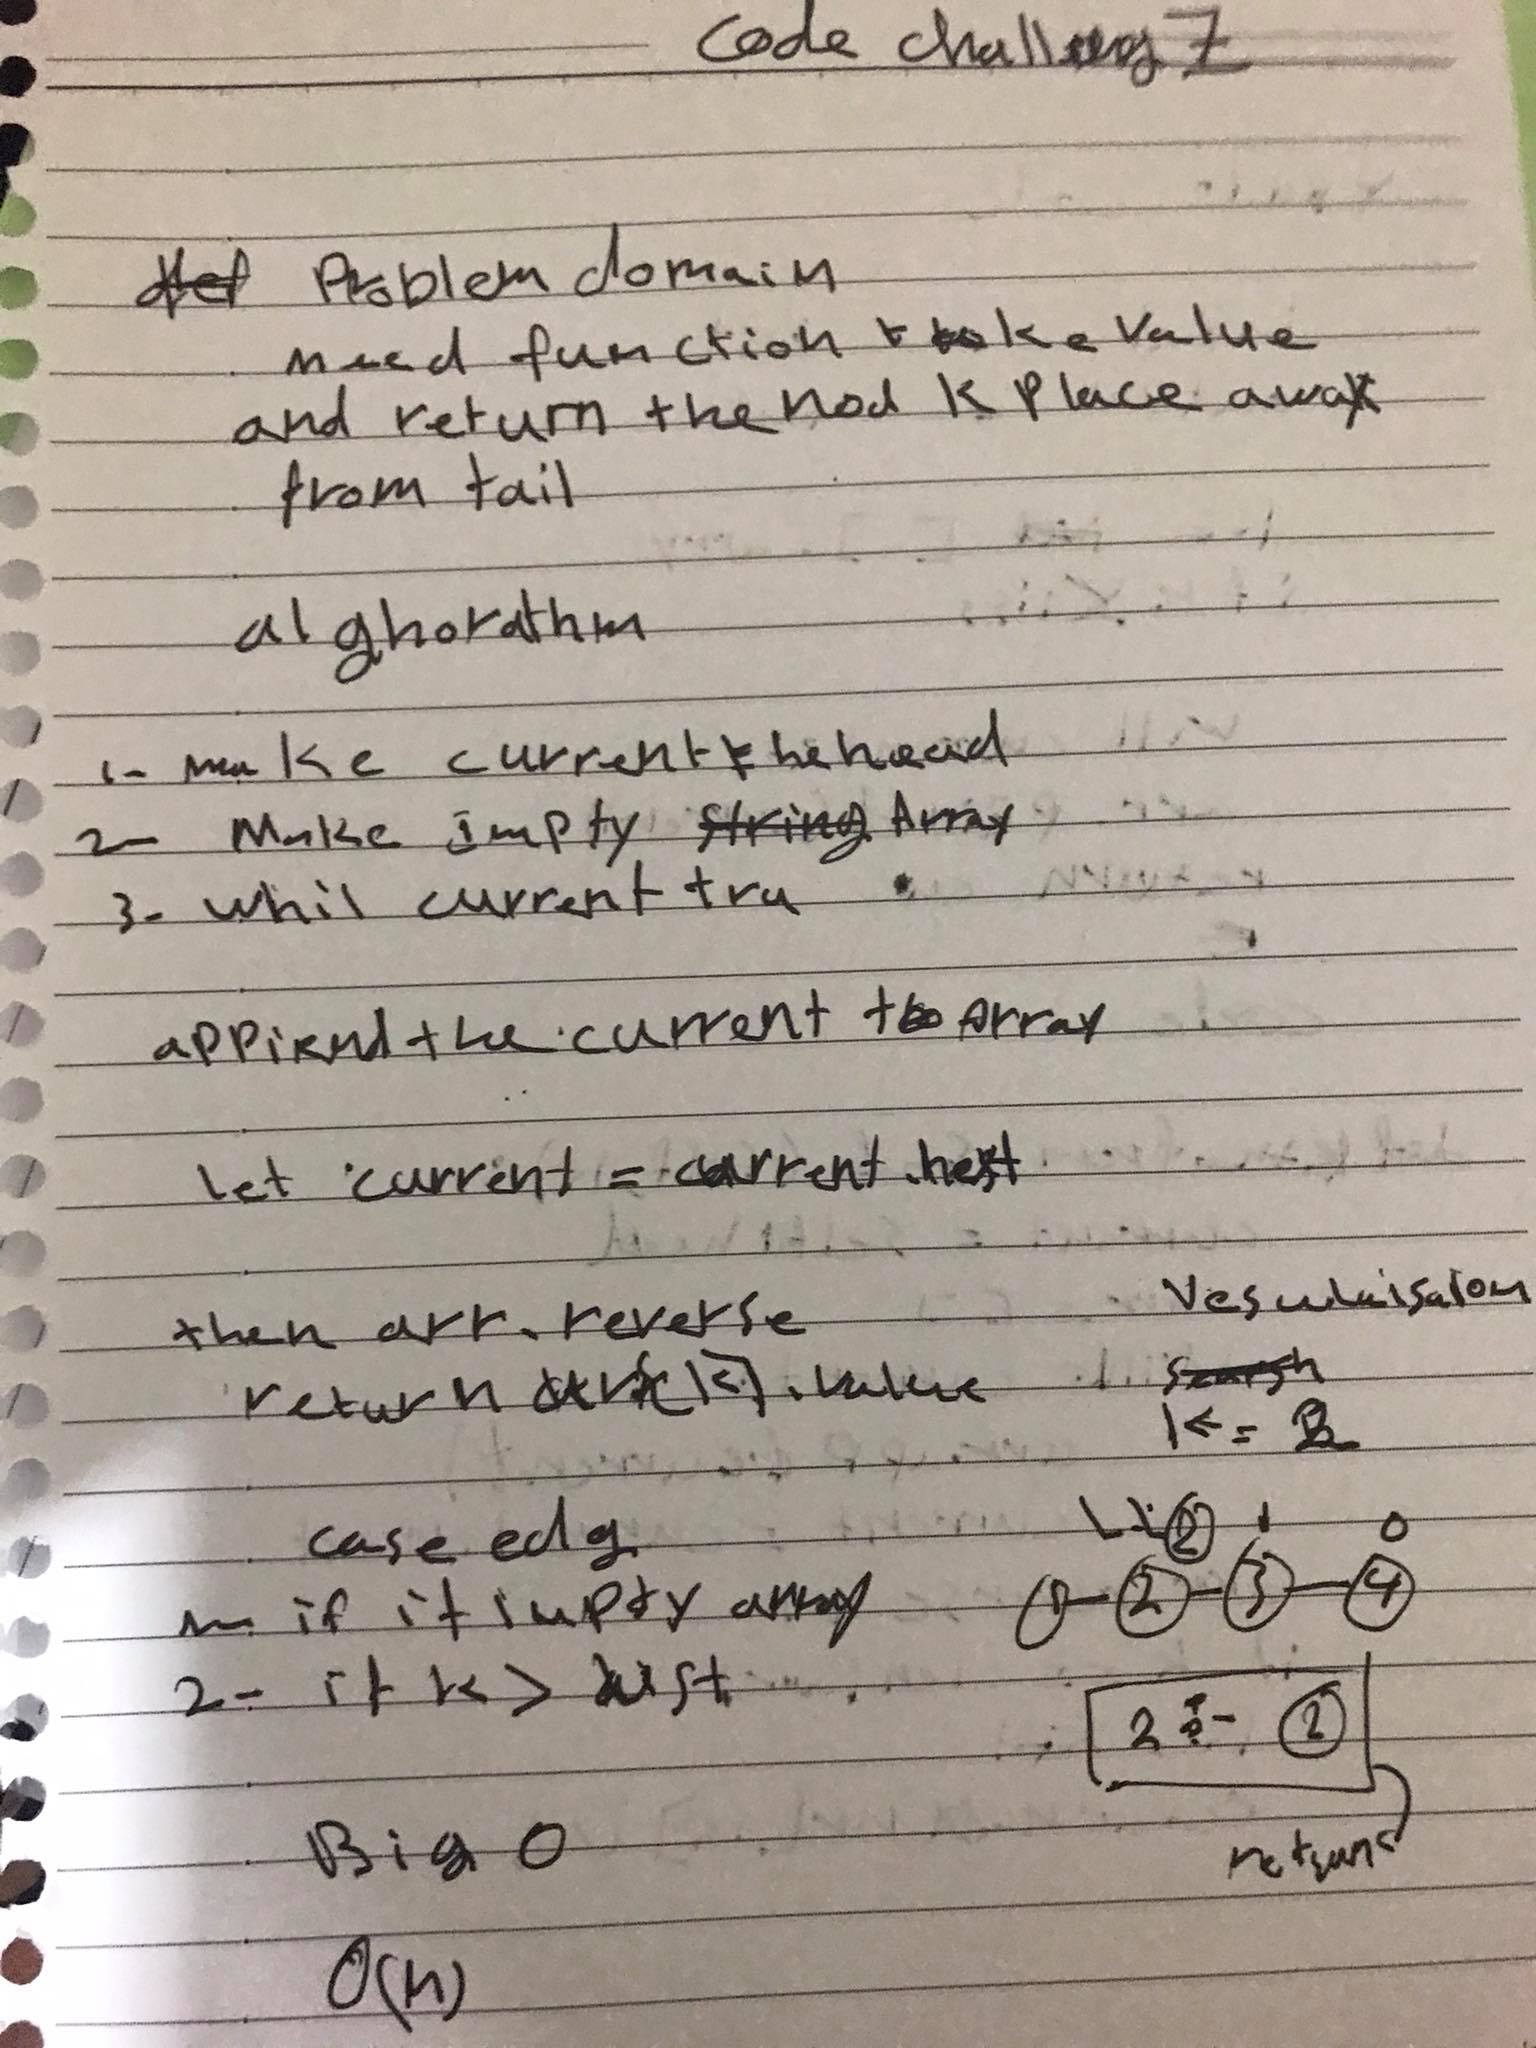 Code challeng 7
Problem domain
need function t take value
and return the nod k place away
from tail
alghorathm
1- make current the head
2- Make impty Array
3- whil current tru
appiend the current to Array
let current = current.next
then arr.reverse
return arr[k].value
Vesulaisaion
k = 2
case edg
LL 2 1 0
1- if it impty array
1 2 3 4
2- if k > list
2 :- 2
return
Big O
O(n)